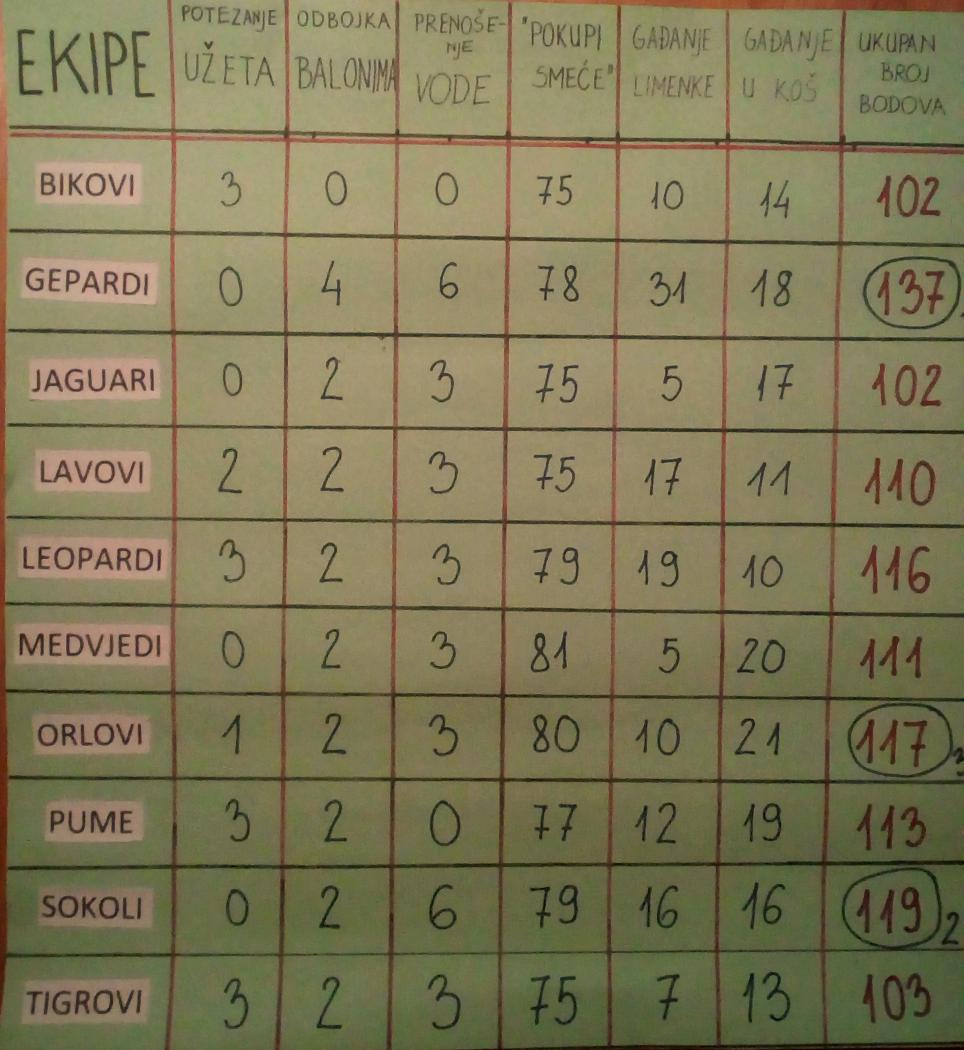 EKIPE POTEZANJE UŽETA ODBOJKA BALONIMA PRENOŠE-NJE VODE "POKUPI SMEĆE" GAĐANJE LIMENKE GAĐANJE U KOŠ UKUPAN BROJ BODOVA
BIKOVI 3 0 0 75 10 14 102
GEPARDI 0 4 6 78 31 18 137
JAGUARI 0 2 3 75 5 17 102
LAVOVI 2 2 3 75 17 11 110
LEOPARDI 3 2 3 79 19 10 116
MEDVJEDI 0 2 3 81 5 20 111
ORLOVI 1 2 3 80 10 21 117 3
PUME 3 2 0 77 12 19 113
SOKOLI 0 2 6 79 16 16 119 2
TIGROVI 3 2 3 75 7 13 103